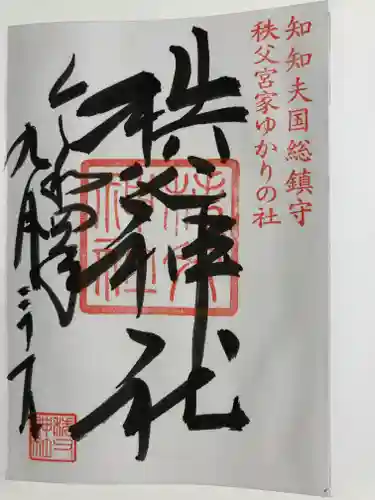 知知夫国総鎮守
秩父宮家ゆかりの社
秩父神社
令和四年
九月二十一日
秩父神社